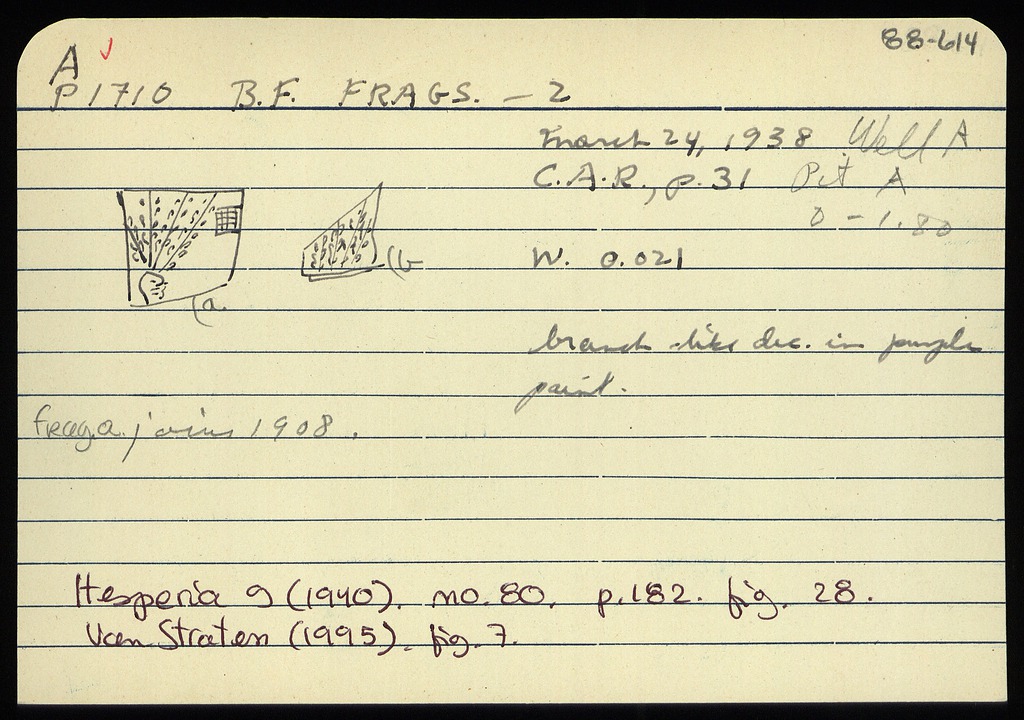 88-614
A
P 1710 B.F. FRAGS. - 2
March 24, 1938 Well A.
C.A.R., p. 31 Pit A
0 - 1.80
W. 0.021
(a.
(b
branch-like dec. in purple
paint.
frag. a. joins 1908.
Hesperia 9 (1940). no. 80. p. 182. fig. 28.
Van Straten (1995). fig. 7.